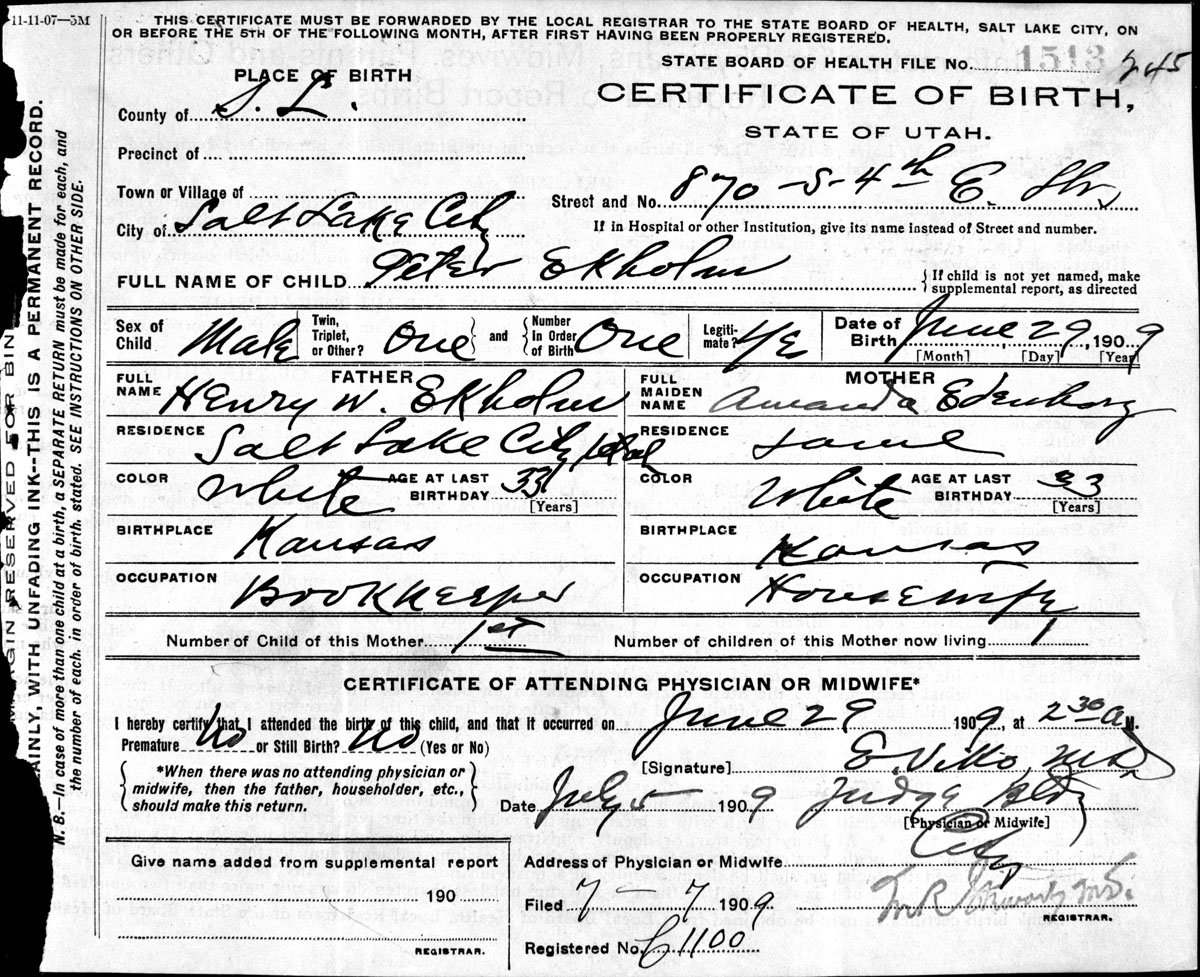 11-11-07—3M
THIS CERTIFICATE MUST BE FORWARDED BY THE LOCAL REGISTRAR TO THE STATE BOARD OF HEALTH, SALT LAKE CITY, ON
OR BEFORE THE 5TH OF THE FOLLOWING MONTH, AFTER FIRST HAVING BEEN PROPERLY REGISTERED.
STATE BOARD OF HEALTH FILE NO. 1513 245
PLACE OF BIRTH
CERTIFICATE OF BIRTH,
County of S. L.
STATE OF UTAH.
Precinct of
Town or Village of
Street and No. 870-S-4th E. Str
City of Salt Lake City
If in Hospital or other Institution, give its name instead of Street and number.
FULL NAME OF CHILD Peter Ekholm
{If child is not yet named, make
supplemental report, as directed
Sex of Child Male
Twin, Triplet, or Other? One } and { Number In Order of Birth One
Legitimate? Ye
Date of Birth June 29, 1909
[Month] [Day] [Year]
FATHER
FULL NAME Henry W. Ekholm
RESIDENCE Salt Lake City Utah
COLOR White AGE AT LAST BIRTHDAY 33 [Years]
BIRTHPLACE Kansas
OCCUPATION Bookkeeper
MOTHER
FULL MAIDEN NAME Amanda Edenborg
RESIDENCE same
COLOR White AGE AT LAST BIRTHDAY 33 [Years]
BIRTHPLACE Kansas
OCCUPATION Housewife
Number of Child of this Mother 1st Number of children of this Mother now living 1
CERTIFICATE OF ATTENDING PHYSICIAN OR MIDWIFE*
I hereby certify that I attended the birth of this child, and that it occurred on June 29 1909, at 2 30 A M.
Premature No or Still Birth? No (Yes or No)
[Signature] E. M.D.
{*When there was no attending physician or
midwife, then the father, householder, etc.,
should make this return.}
Date July 5 1909 Judge Bldg
[Physician or Midwife]
Give name added from supplemental report
190
REGISTRAR.
Address of Physician or Midwife City
Filed 7 - 7 1909
M.D.
REGISTRAR.
Registered No. 1100
MARGIN RESERVED FOR BIN
AINLY, WITH UNFADING INK--THIS IS A PERMANENT RECORD.
N. B.—In case of more than one child at a birth, a SEPARATE RETURN must be made for each, and
the number of each. in order of birth. stated. SEE INSTRUCTIONS ON OTHER SIDE.